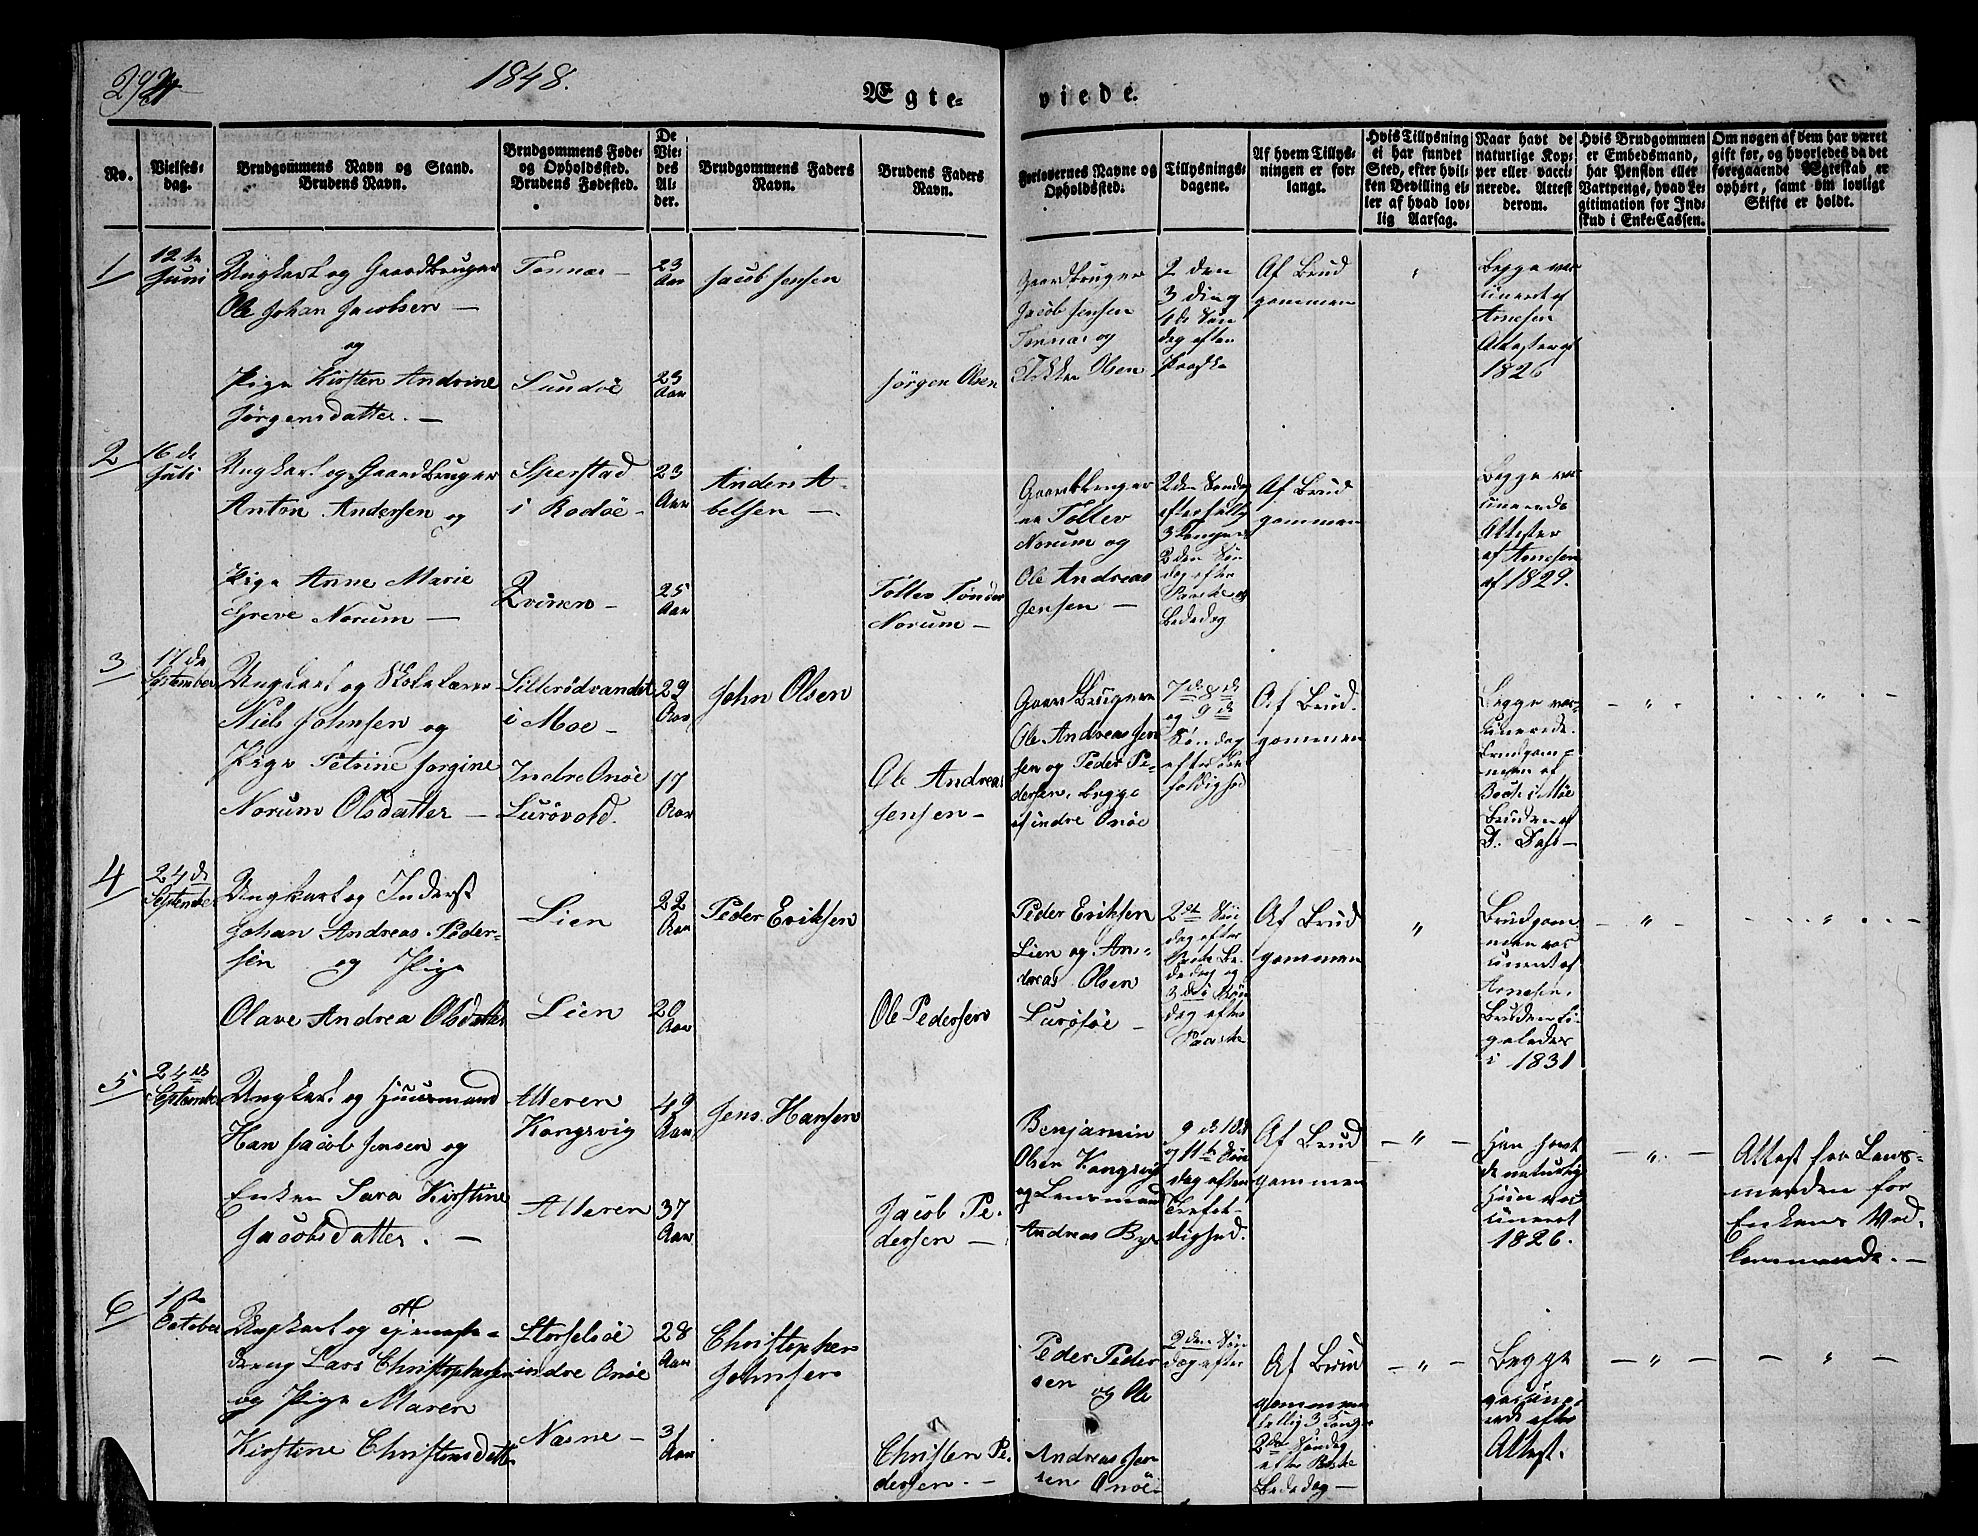 1848.
Ægte-
viede.
No.
Vielses-
dag.
Brudgommens Navn og Stand.
Brudens Navn.
Brudgommens Føde-
og Opholdssted.
Brudens Fødested.
De
Vie-
des
Al-
der.
Brudgommens Faders
Navn.
Brudens Faders
Navn.
Forlovernes Navne og
Opholdssted.
Tillysnings-
dagene.
Af hvem Tillys-
ningen er for-
langt.
Hvis Tillysning
ei har fundet
Sted, efter hvil-
ken Bevilling el-
ler af hvad lov-
lig Aarsag.
Naar havt de
naturlige Kop-
per eller vacci-
nerede. Attest
derom.
Hvis Brudgommen
er Embedsmand,
har Pension eller
Vartpenge, hvad Le-
gitimation for Ind-
skud i Enke-Cassen.
Om nogen af dem har været
gift før, og hvorledes da det
foregaaende Ægteskab er
ophørt, samt om lovligt
Skifte er holdt.
1
12te
Juni
Ungkarl og Gaardbruger
Ole Johan Jacobsen —
og
Pige Kirsten Andrine
Jørgensdatter. —
Tonnes —
Sundøe
23
Aar
23
Aar
Jacob Jensen
Jørgen Olsen
Gaardbruger
Jacob Jensen
Tonnes og
Olsen
2den
3die og
4de Søn
dag efter
Paaske
Af Brud
gommen
Begge vac
cineret af
Arnesen
Attester af
1826
2
16de
Juli
Ungkarl og Gaardbruger
Anton Andersen og
Pige Anne Marie
Greve Norum —
Sperstad
i Rodøe —
Qvinen —
23
Aar
25
Aar
Anders A-
belsen —
Tollev Tønder
Norum —
Gaardbruger
ne Tollev
Norum og
Ole Andreas
Jensen —
2den Søndag
3 Gange
2den Søn
dag efter
Paaske og
Bededag
Af Brud
gommen
Begge vac
cinerede
Attester
af Arnesen
af 1829.
3
17de
September
Ungkarl og Skolelærer
Niels Johnsen og
Pige Petrine Jorgine
Norum Olsdatter —
Lillerødvandet
i Moe —
Indre Onøe
Lurøvold.
29
Aar
17
Aar
John Olsen
Ole Andreas
Jensen —
Gaardbrugerne
Ole Andreas Jen
sen og Peder Pe-
dersen, begge
af indre Onøe
7de 8de
og 9de
Søndag
efter Tre
foldighed
Af Brud-
gommen
Begge vac-
cinerede.
Brudgom-
men af
i Moe
Bruden af
D. Dass —
— „ —
— „ —
4
24de
September
Ungkarl og Inderst
Johan Andreas Peder-
sen og Pige
Olave Andrea Olsdatter
Lien
Lien
22
Aar
20
Aar
Peder Eriksen
Ole Pedersen
Peder Eriksen
Lien og An-
dreas Olsen
Lurøsøe —
2den Søn
dag efter
dedag og
3die Søn
dag efter
Paaske
Af Brud
gommen
„
Brudgom
men vac
cineret af
Arnesen,
Bruden li-
geledes
i 1831
— „ —
— „ —
5
24de
September
Ungkarl og Huusmand
Han Jacob Jensen og
Enken Sara Kirstine
Jacobsdatter. —
Alteren
Kongsvig
Alteren
49
Aar
37
Aar
Jens Hansen
Jacob Pe-
dersen —
Benjamin
Olsen Kongsvig
og Lensmand
Andreas Bye
9de 10de
og 11te Søn
dag efter
Trefol-
dighed.
Af Brud
gommen
— „ —
Han havt
de naturlig
Hun vac
cineret
1826.
— „ —
Attest fra Lens-
manden for
Enkens Ved-
kommende. —
6
1ste
October
Ungkarl og Tjeneste-
dreng Lars Christophersen
og Pige Maren
Kirstine Christensdatt
Storselsøe
indre Onøe
Næsne —
28
Aar
31
Aar
Christopher
Johnsen
Christen Pe-
dersen. —
Peder Peder
sen
og Ole
Andreas Jen
sen Onøe.
2den Søn
dag efter
Af Brud
gommen
3 Gange
2den Søndag
efter Paaske
Bededag —
— „ —
Begge
vaccine-
rede efter
Attest.
— „ —
— „ —